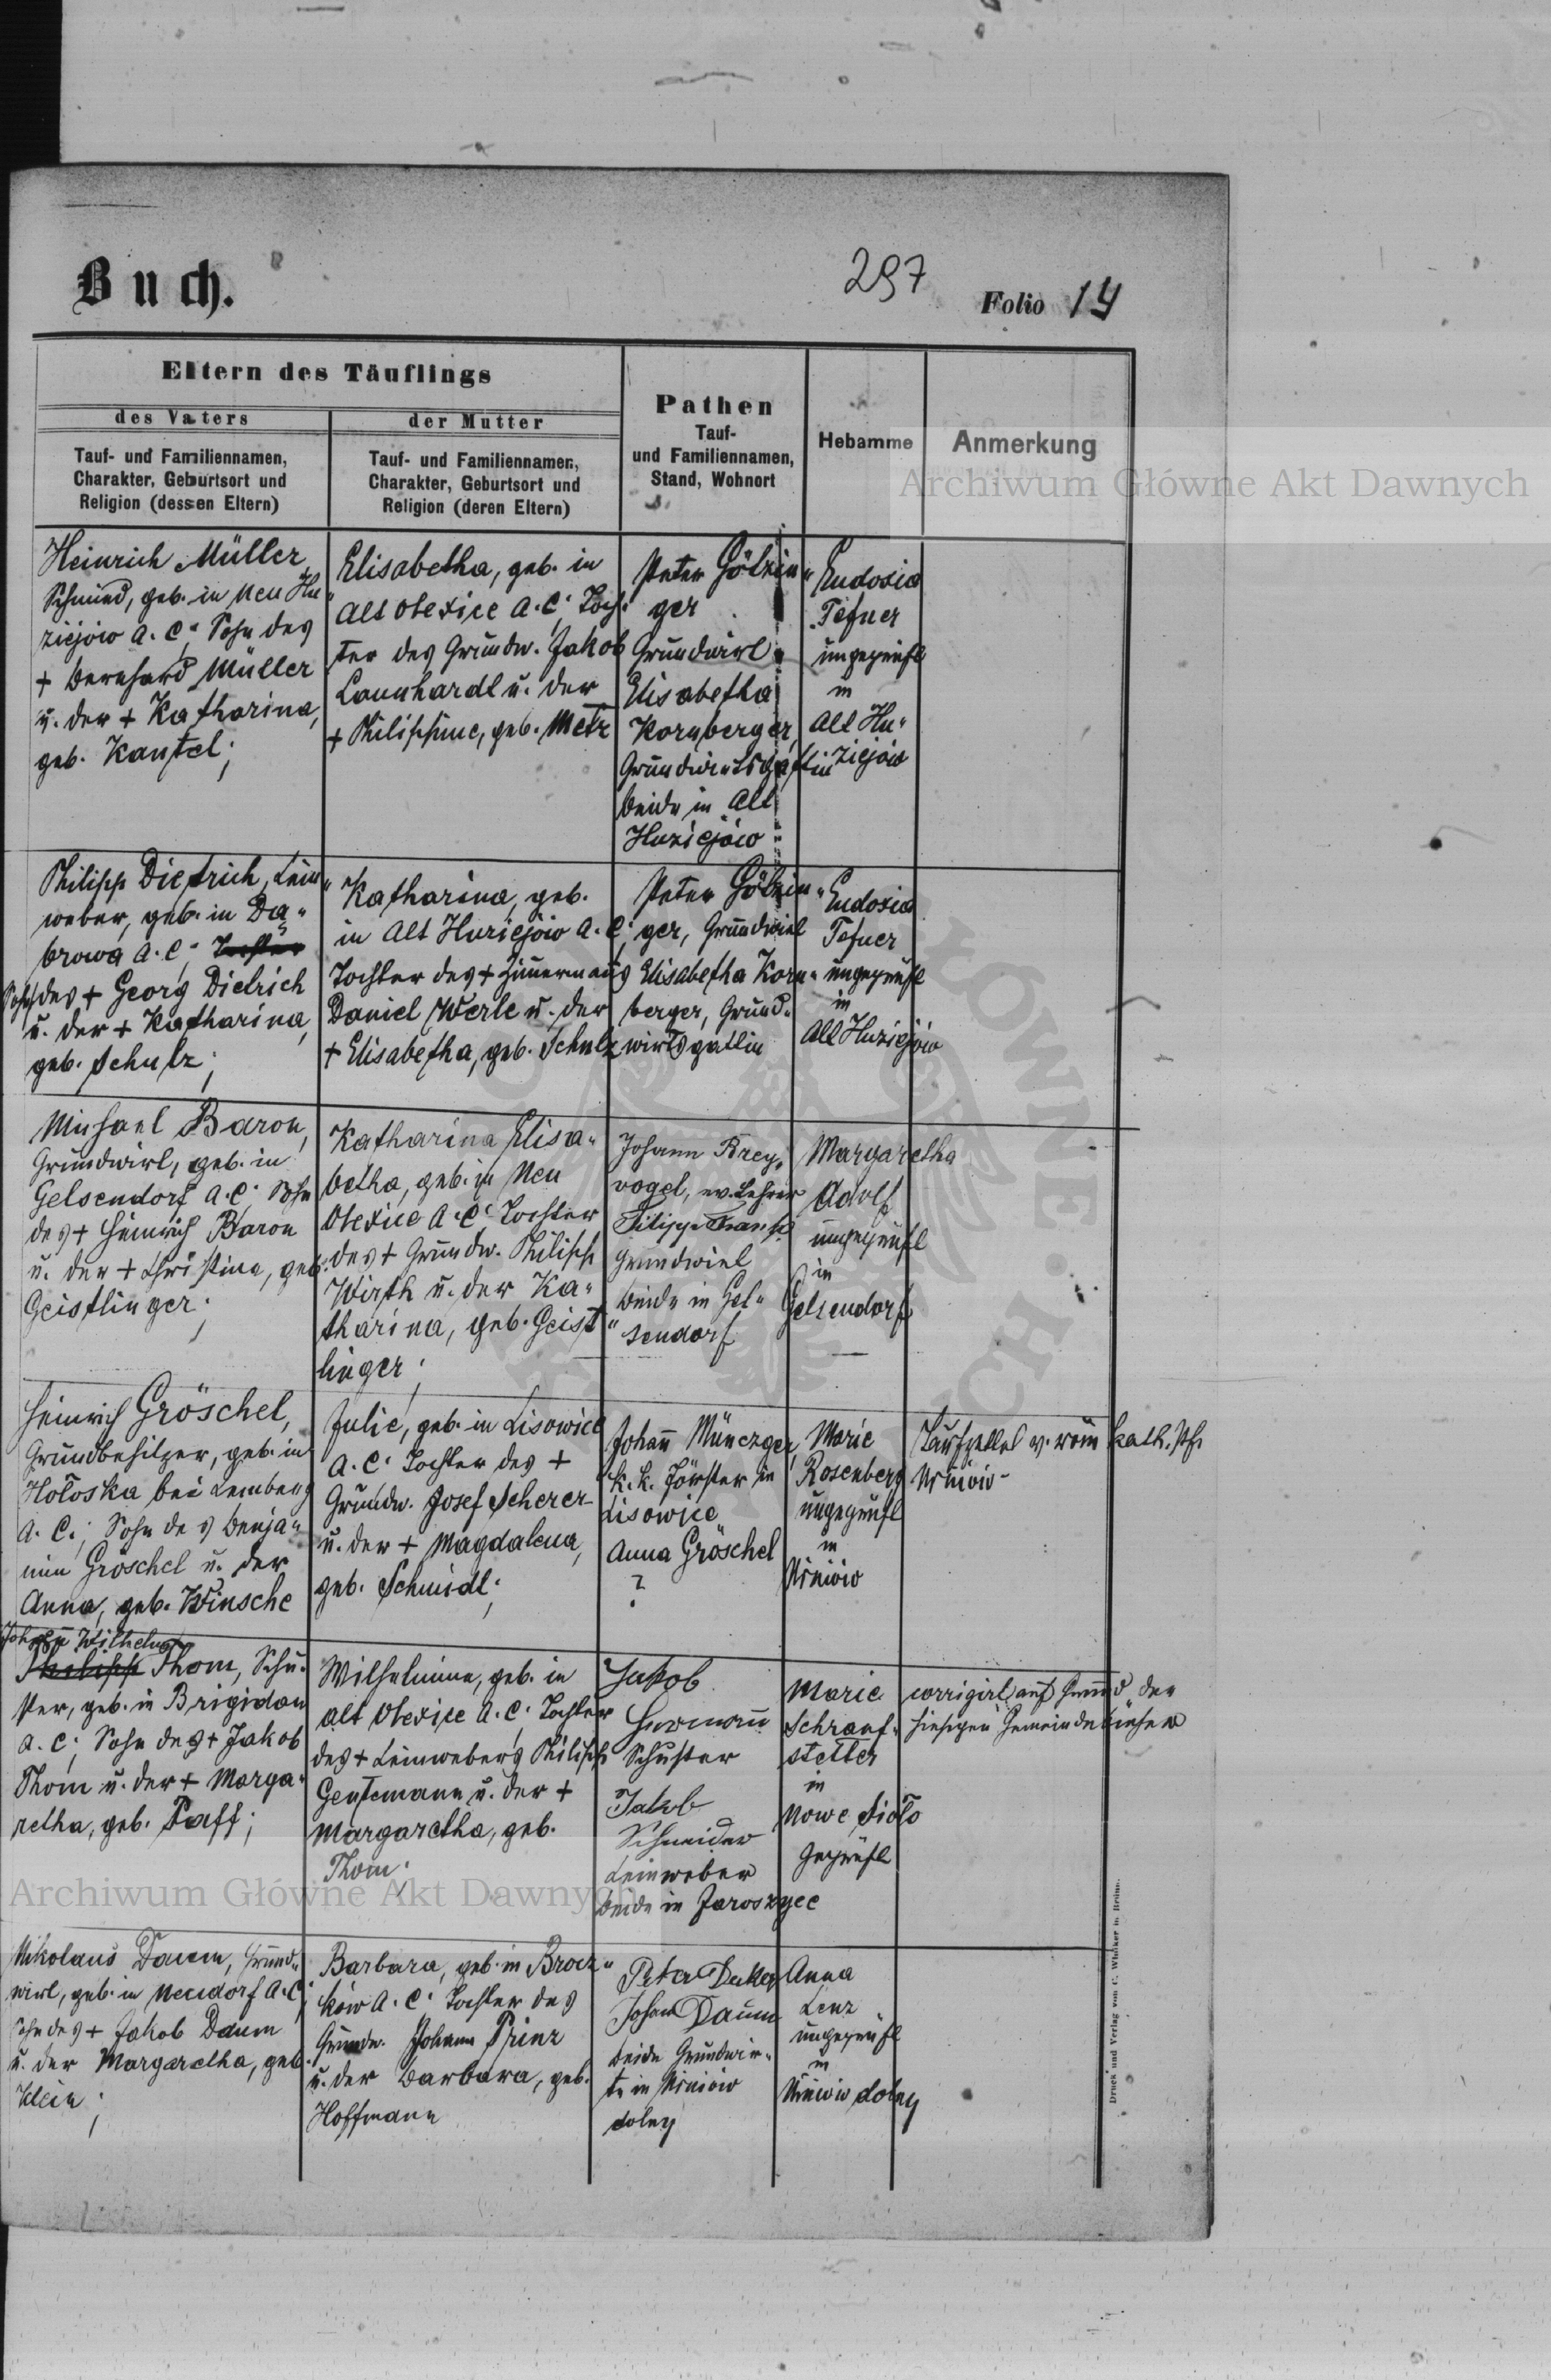 Buch.
297
Folio 14
Eltern des Täuflings
des Vaters
Tauf- und Familiennamen,
Charakter, Geburtsort und
Religion (dessen Eltern)
der Mutter
Tauf- und Familiennamen,
Charakter, Geburtsort und
Religion (deren Eltern)
Pathen
Tauf-
und Familiennamen,
Stand, Wohnort
Hebamme
Anmerkung
Archiwum Główne Akt Dawnych
Heinrich Müller,
Schmied, geb. in Neu Hu„
ziejów A. C; Sohn des
+ Bernhard Müller
u. der + Katharina,
geb. Kantel;
Elisabetha, geb. in
Alt Olexice A. C; Toch„
ter des Grundw. Jakob
Launhardt u. der
+ Philippine, geb. Metz
Peter Götzin„
ger
Grundwirt
Elisabetha
Kornberger,
Grundwirtsgattin
beide in Alt
Huziejów
Eudosia
Tefner
ungeprüft
in
Alt Hu„
ziejów
Philipp Dietrich, Lein„
weber, geb. in Da„
browa A. C; Tochter
Sohn des + Georg Dietrich
u. der + Katharina,
geb. Schulz;
Katharina, geb.
in Alt Huziejów A. C;
Tochter des + Zimmermanns
Daniel Werle u. der
+ Elisabetha, geb. Schulz
Peter Götzin„
ger, Grundwirt
Elisabetha Korn„
berger, Grund„
wirtsgattin
Eudosia
Tefner
ungeprüft
in
Alt Huziejów
Michael Baron,
Grundwirt, geb. in
Gelsendorf A. C; Sohn
des + Heinrich Baron
u. der + Christina, geb.
Geistlinger;
Katharina Elisa„
betha, geb. in Neu
Olexice A. C; Tochter
des + Grundw. Philipp
Wirth u. der Ka„
tharina, geb. Geist„
linger;
Johann Krey„
vogel, ev. Lehrer
Filipp
Grundwirt
beide in Gel„
sendorf
Margaretha
Adolf
ungeprüft
in
Gelsendorf
Heinrich Gröschel,
Grundbesitzer, geb. in
Hołoska bei Lemberg
A. C.; Sohn des Benja„
min Gröschel u. der
Anna, geb. Winsche
Julie, geb. in Lisowice
A. C; Tochter des +
Grundw. Josef Scherer
u. der + Magdalena,
geb. Schmidt;
Johann Münczger,
k. k. Förster in
Lisowice
Anna Gröschel
?
Marie
Rosenberg
ungeprüft
in
Wniów
Taufzettel v. röm kath. Pf.
Johann Wilhelm
Philipp Thom, Schu„
ster, geb. in Brigidau
A. C; Sohn des + Jakob
Thom u. der + Marga„
retha, geb. Paff;
Wilhelmine, geb. in
Alt Olexice A. C; Tochter
des + Leinwebers Philipp
Gentemann u. der +
Margaretha, geb.
Thom;
Jakob
Hermann
Schuster
Jakob
Schneider
Leinweber
beide in Jaroszyce
Marie
Schranf„
stetter
in
Nowe Sioło
geprüft
corrigirt auf Grund der
hiesigen Gemeindebücher
Archiwum Główne Akt Dawnych
Nikolaus Daum, Grund„
wirt, geb. in Neudorf A. C;
Sohn des + Jakob Daum
u. der Margaretha, geb.
Klein;
Barbara, geb. in Brocz„
ków A. C; Tochter des
Grundw. Johann Prinz
u. der Barbara, geb.
Hoffmann
Peter Decker
Johann Daum
beide Grundwir„
te in
dolny
Anna
Lenz
ungeprüft
in
dolny
Druck und Verlag von C. Winiker in Brünn.